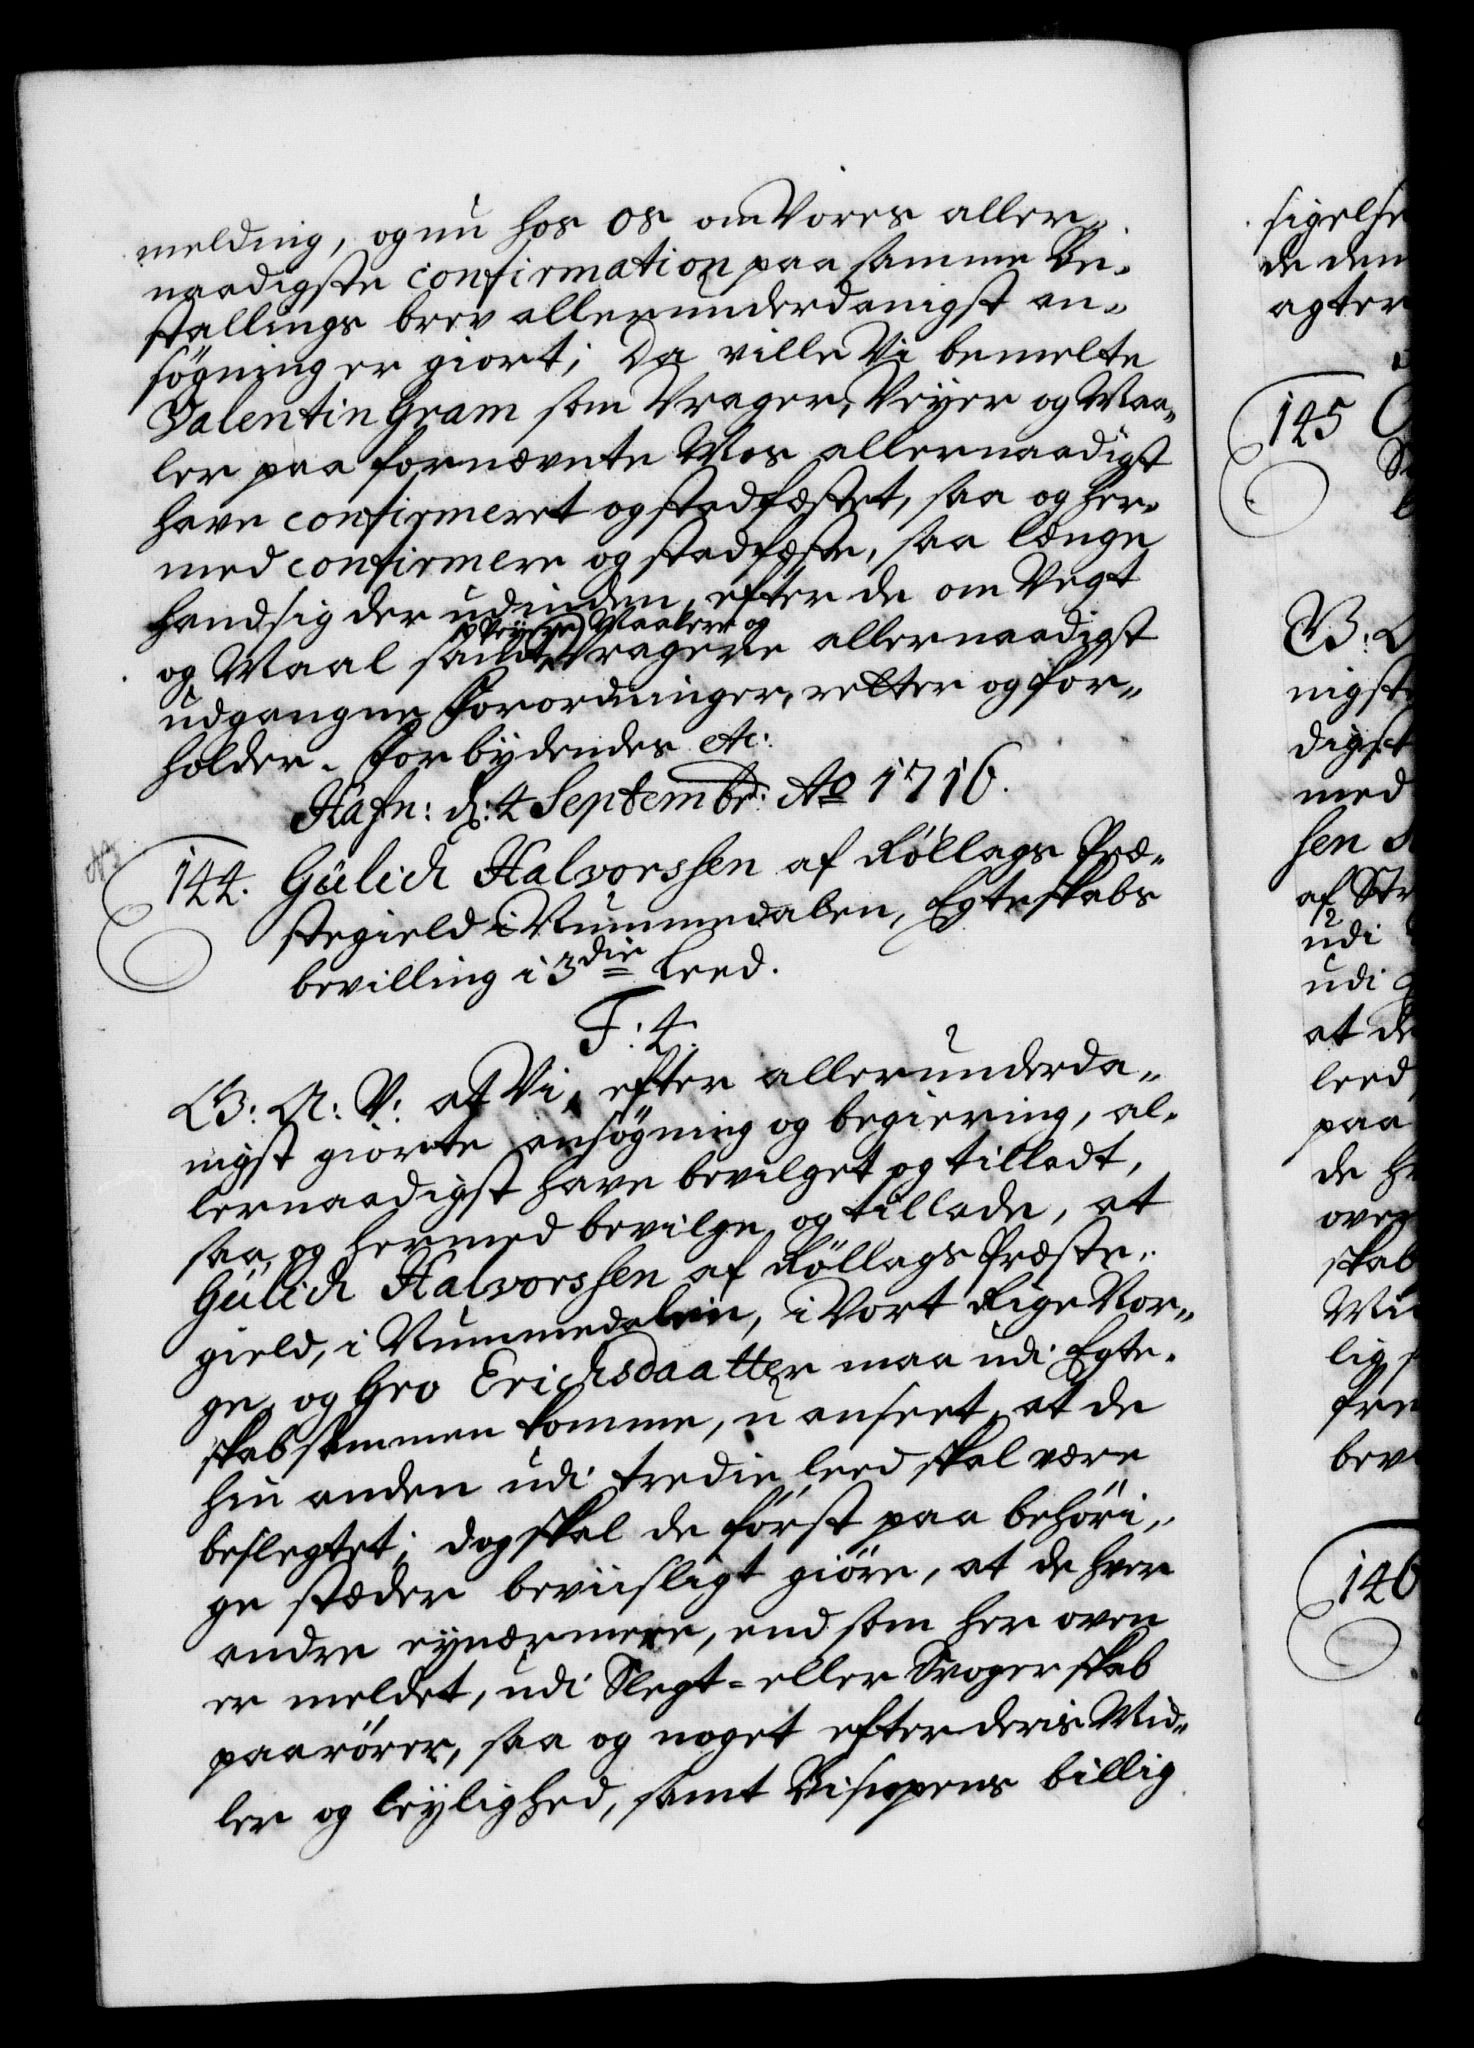 melding, og nu hos os om Vores aller„
naadigste confirmation paa samme Be„
stallings brev allerunderdanigst an„
søgning er giort; Da ville Vi bemelte
Valentin Gram som Vrager, Veyer og Maa„
ler paa fornævnte Mos allernaadigst
have confirmeret og stadfæstet, saa og her„
med confirmere og stadfæste, saa længe
hand sig der udinden, efter de om Vegt
Veyere, Maalere og
og Maal samt Vragere allernaadigst
udgangne Forordninger, retter og for„
holder. Forbydendes etc:
Hafn: d: 4 Septembr: Ao 1716.
144. Gulich Halvorssen af Røllags Præ„
stegield i Nummedalen, Egteskabs
bevilling i 3die Leed.
F: 4.
G: A: V: at Vi, efter allerunderda„
nigst giorte ansøgning og begiering, al„
lernaadigst have bevilget og tilladt,
saa og hermed bevilge og tillade, at
Gulich Halvorssen af Røllags Præste„
gield, i Nummedalen, i Vort Rige Nor„
ge, og Gro Erichsdaatter maa udi Egte„
skab sammen komme, uanseet, at de
hin anden udi tredie leed skal være
beslegtet; dog skal de først paa behøri„
ge stæder beviisligt giøre, at de hver
andre ey nærmere, end som her oven
er meldet, udi Slegt- eller Svogerskab
paarører, saa og noget efter deris Mid„
ler og leylighed, samt Bispens billig
sigelse
de den
agter
145
nigst
digst
med
sen
af
udi
udi
at de
leed
paa
de
skab
lig
146